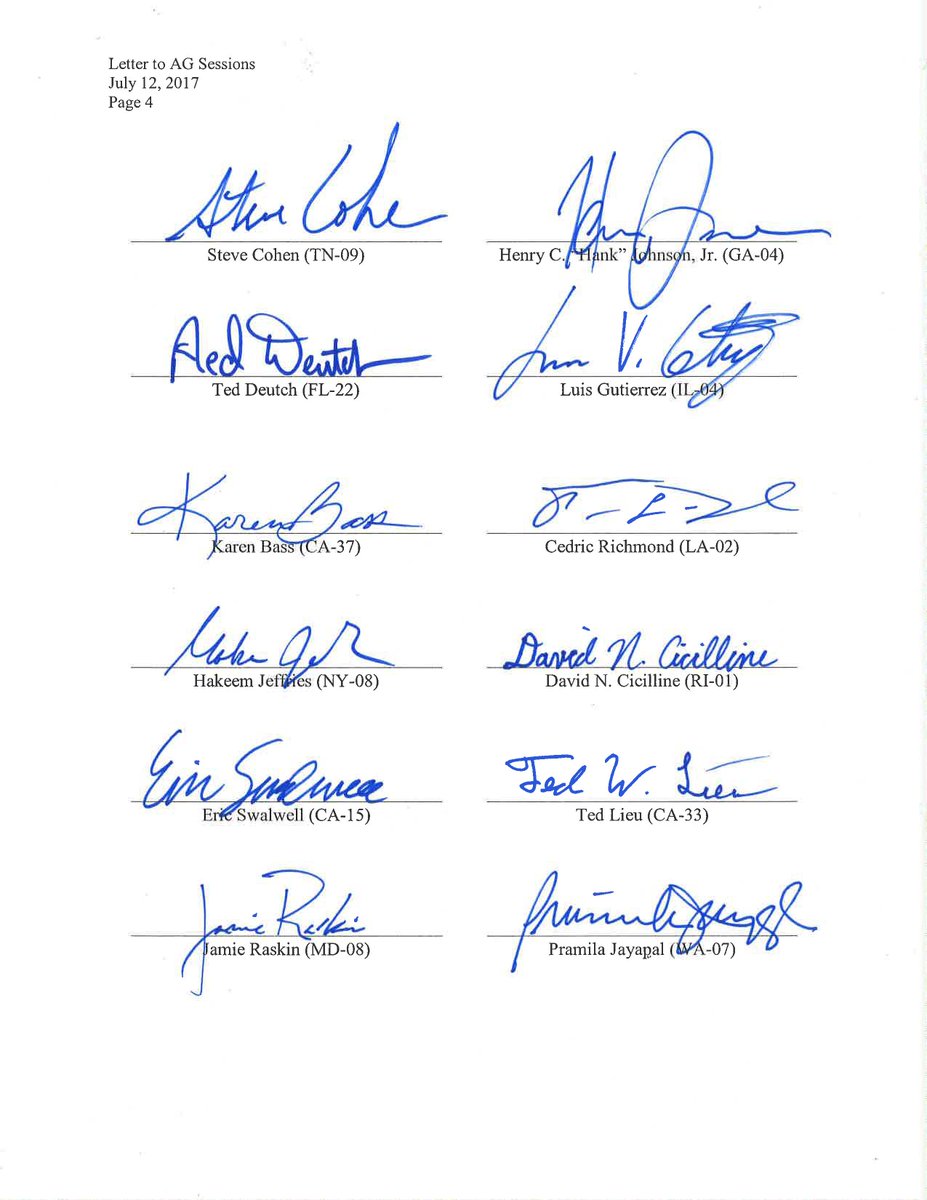 Letter to AG Sessions
July 12, 2017
Page 4
Steve Cohen
Steve Cohen (TN-09)
Henry C. "Hank" Johnson, Jr. (GA-04)
Ted Deutch
Ted Deutch (FL-22)
Luis V. Gutierrez
Luis Gutierrez (IL-04)
Karen Bass
Karen Bass (CA-37)
Cedric Richmond (LA-02)
Hakeem Jeffries (NY-08)
David N. Cicilline
David N. Cicilline (RI-01)
Eric Swalwell
Eric Swalwell (CA-15)
Ted W. Lieu
Ted Lieu (CA-33)
Jamie Raskin
Jamie Raskin (MD-08)
Pramila Jayapal
Pramila Jayapal (WA-07)